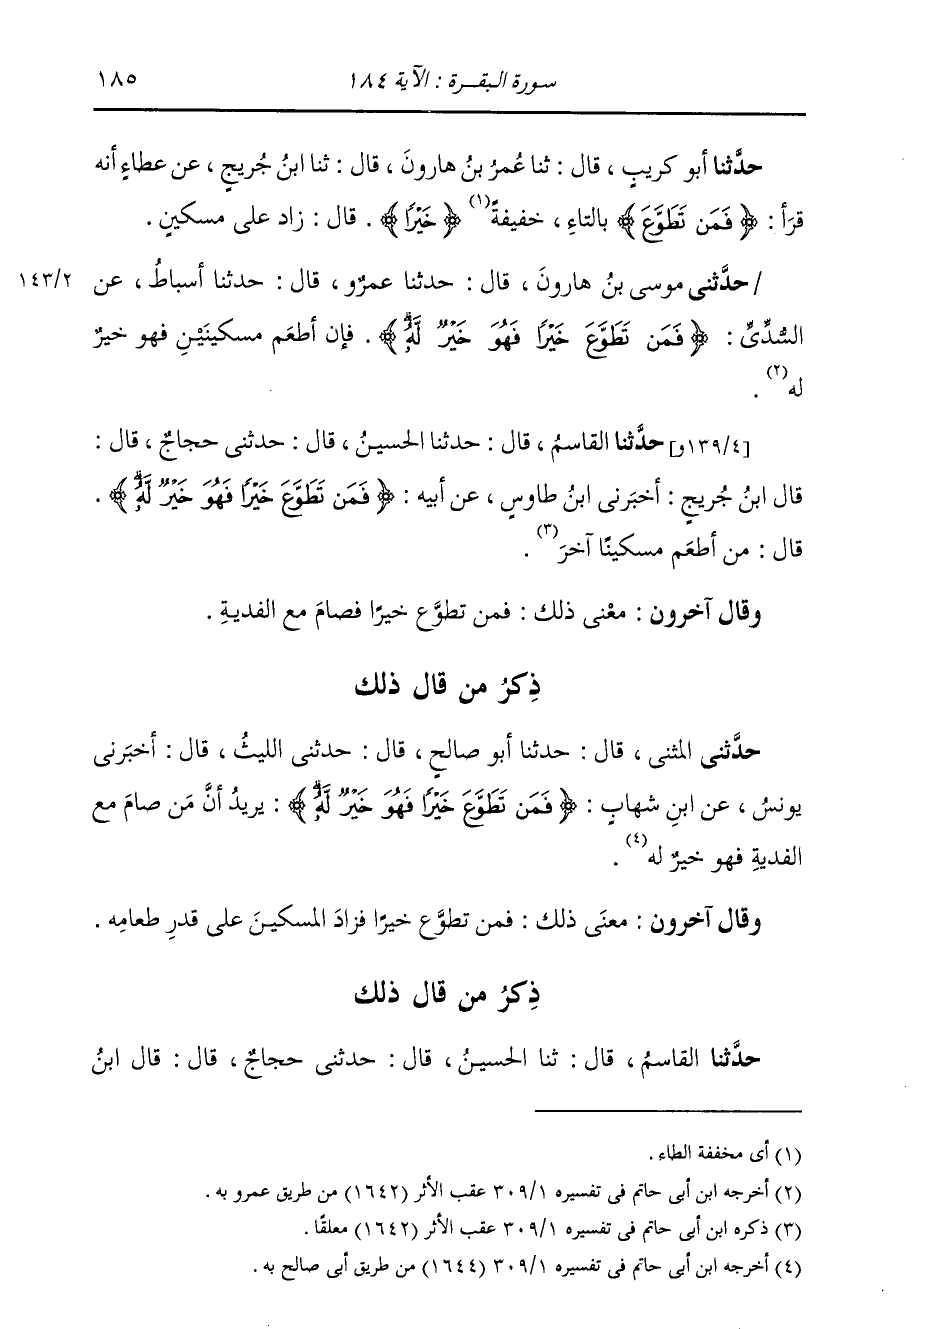 سورة البقرة : الآية ١٨٤ ١٨٥
حدَّثنا أبو كريبٍ ، قال : ثنا عُمرُ بنُ هارونَ ، قال : ثنا ابنُ جُريجٍ ، عن عطاءٍ أنه
قرَأ : ﴿ فَمَن تَطَوَّعَ ﴾ بالتاءِ ، خفيفةً (١) ﴿ خَيْرًا ﴾ . قال : زاد على مسكينٍ .
/ حدَّثنى موسى بنُ هارونَ ، قال : حدثنا عمرٌو ، قال : حدثنا أسباطُ ، عن ١٤٣/٢
السُّدِّىِّ : ﴿ فَمَن تَطَوَّعَ خَيْرًا فَهُوَ خَيْرٌ لَّهُۥ ﴾ . فإن أطعَم مسكينَيْنِ فهو خيرٌ
له (٢) .
[١٣٩/٤و] حدَّثنا القاسمُ ، قال : حدثنا الحسينُ ، قال : حدثنى حجاجٌ ، قال :
قال ابنُ جُريجٍ : أخبَرنى ابنُ طاوسٍ ، عن أبيه : ﴿ فَمَن تَطَوَّعَ خَيْرًا فَهُوَ خَيْرٌ لَّهُۥ ﴾ .
قال : من أطعَم مسكينًا آخرَ (٣) .
وقال آخرون : معْنى ذلك : فمن تطوَّع خيرًا فصامَ مع الفديةِ .
ذِكرُ من قال ذلك
حدَّثنى المثنى ، قال : حدثنا أبو صالحٍ ، قال : حدثنى الليثُ ، قال : أخبَرنى
يونسُ ، عن ابنِ شهابٍ : ﴿ فَمَن تَطَوَّعَ خَيْرًا فَهُوَ خَيْرٌ لَّهُۥ ﴾ : يريدُ أنَّ مَن صامَ مع
الفديةِ فهو خيرٌ له (٤) .
وقال آخرون : معنَى ذلك : فمن تطوَّع خيرًا فزادَ المسكينَ على قدرِ طعامِه .
ذِكرُ من قال ذلك
حدَّثنا القاسمُ ، قال : ثنا الحسينُ ، قال : حدثنى حجاجٌ ، قال : قال ابنُ
(١) أى مخففة الطاء .
(٢) أخرجه ابن أبى حاتم فى تفسيره ٣٠٩/١ عقب الأثر (١٦٤٢) من طريق عمرو به .
(٣) ذكره ابن أبى حاتم فى تفسيره ٣٠٩/١ عقب الأثر (١٦٤٢) معلقًا .
(٤) أخرجه ابن أبى حاتم فى تفسيره ٣٠٩/١ (١٦٤٤) من طريق أبى صالح به .